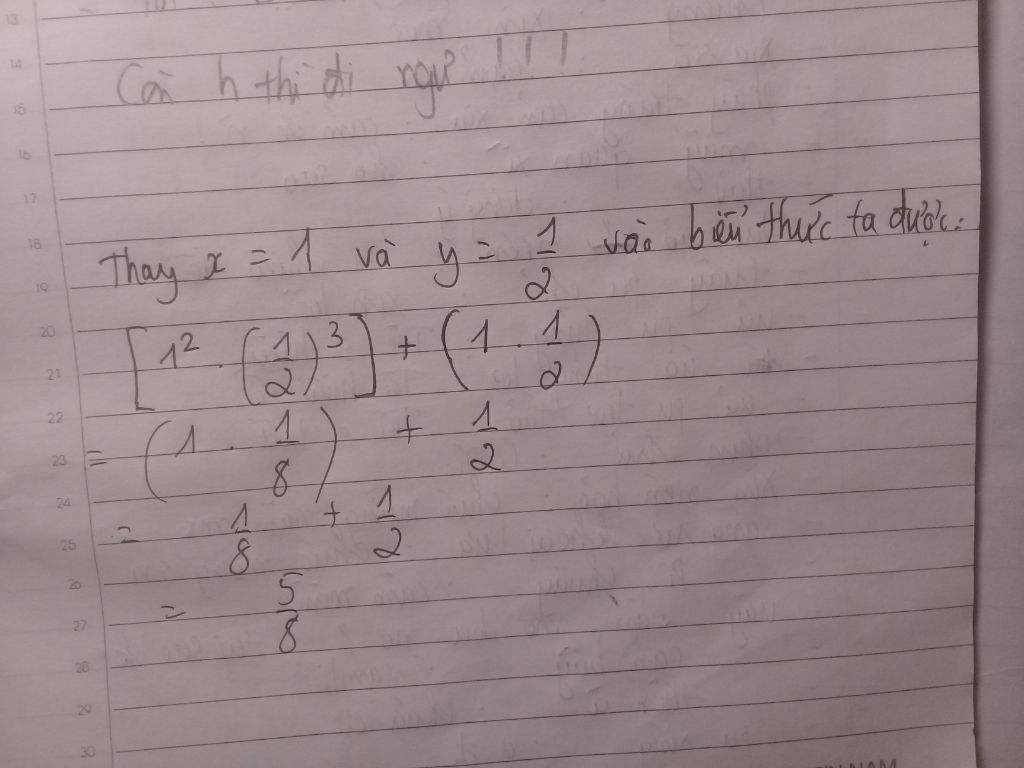 13
14
Còn h thì đi ngủ !!!
15
16
17
18 Thay x = 1 và y = 1/2 vào biểu thức ta được:
19
20
[1² . (1/2)³] + (1 . 1/2)
21
22
23 = (1 . 1/8) + 1/2
24
25 = 1/8 + 1/2
26
= 5/8
27
28
29
30
NAM